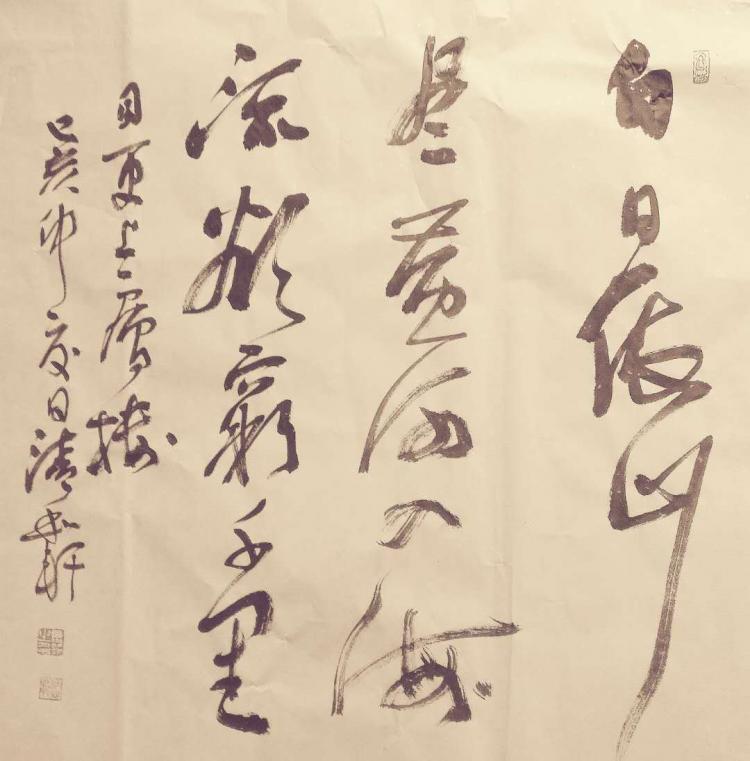 白日依山
尽黄河入海
流欲窮千里
目更上一層楼
己亥仲夏日清軒